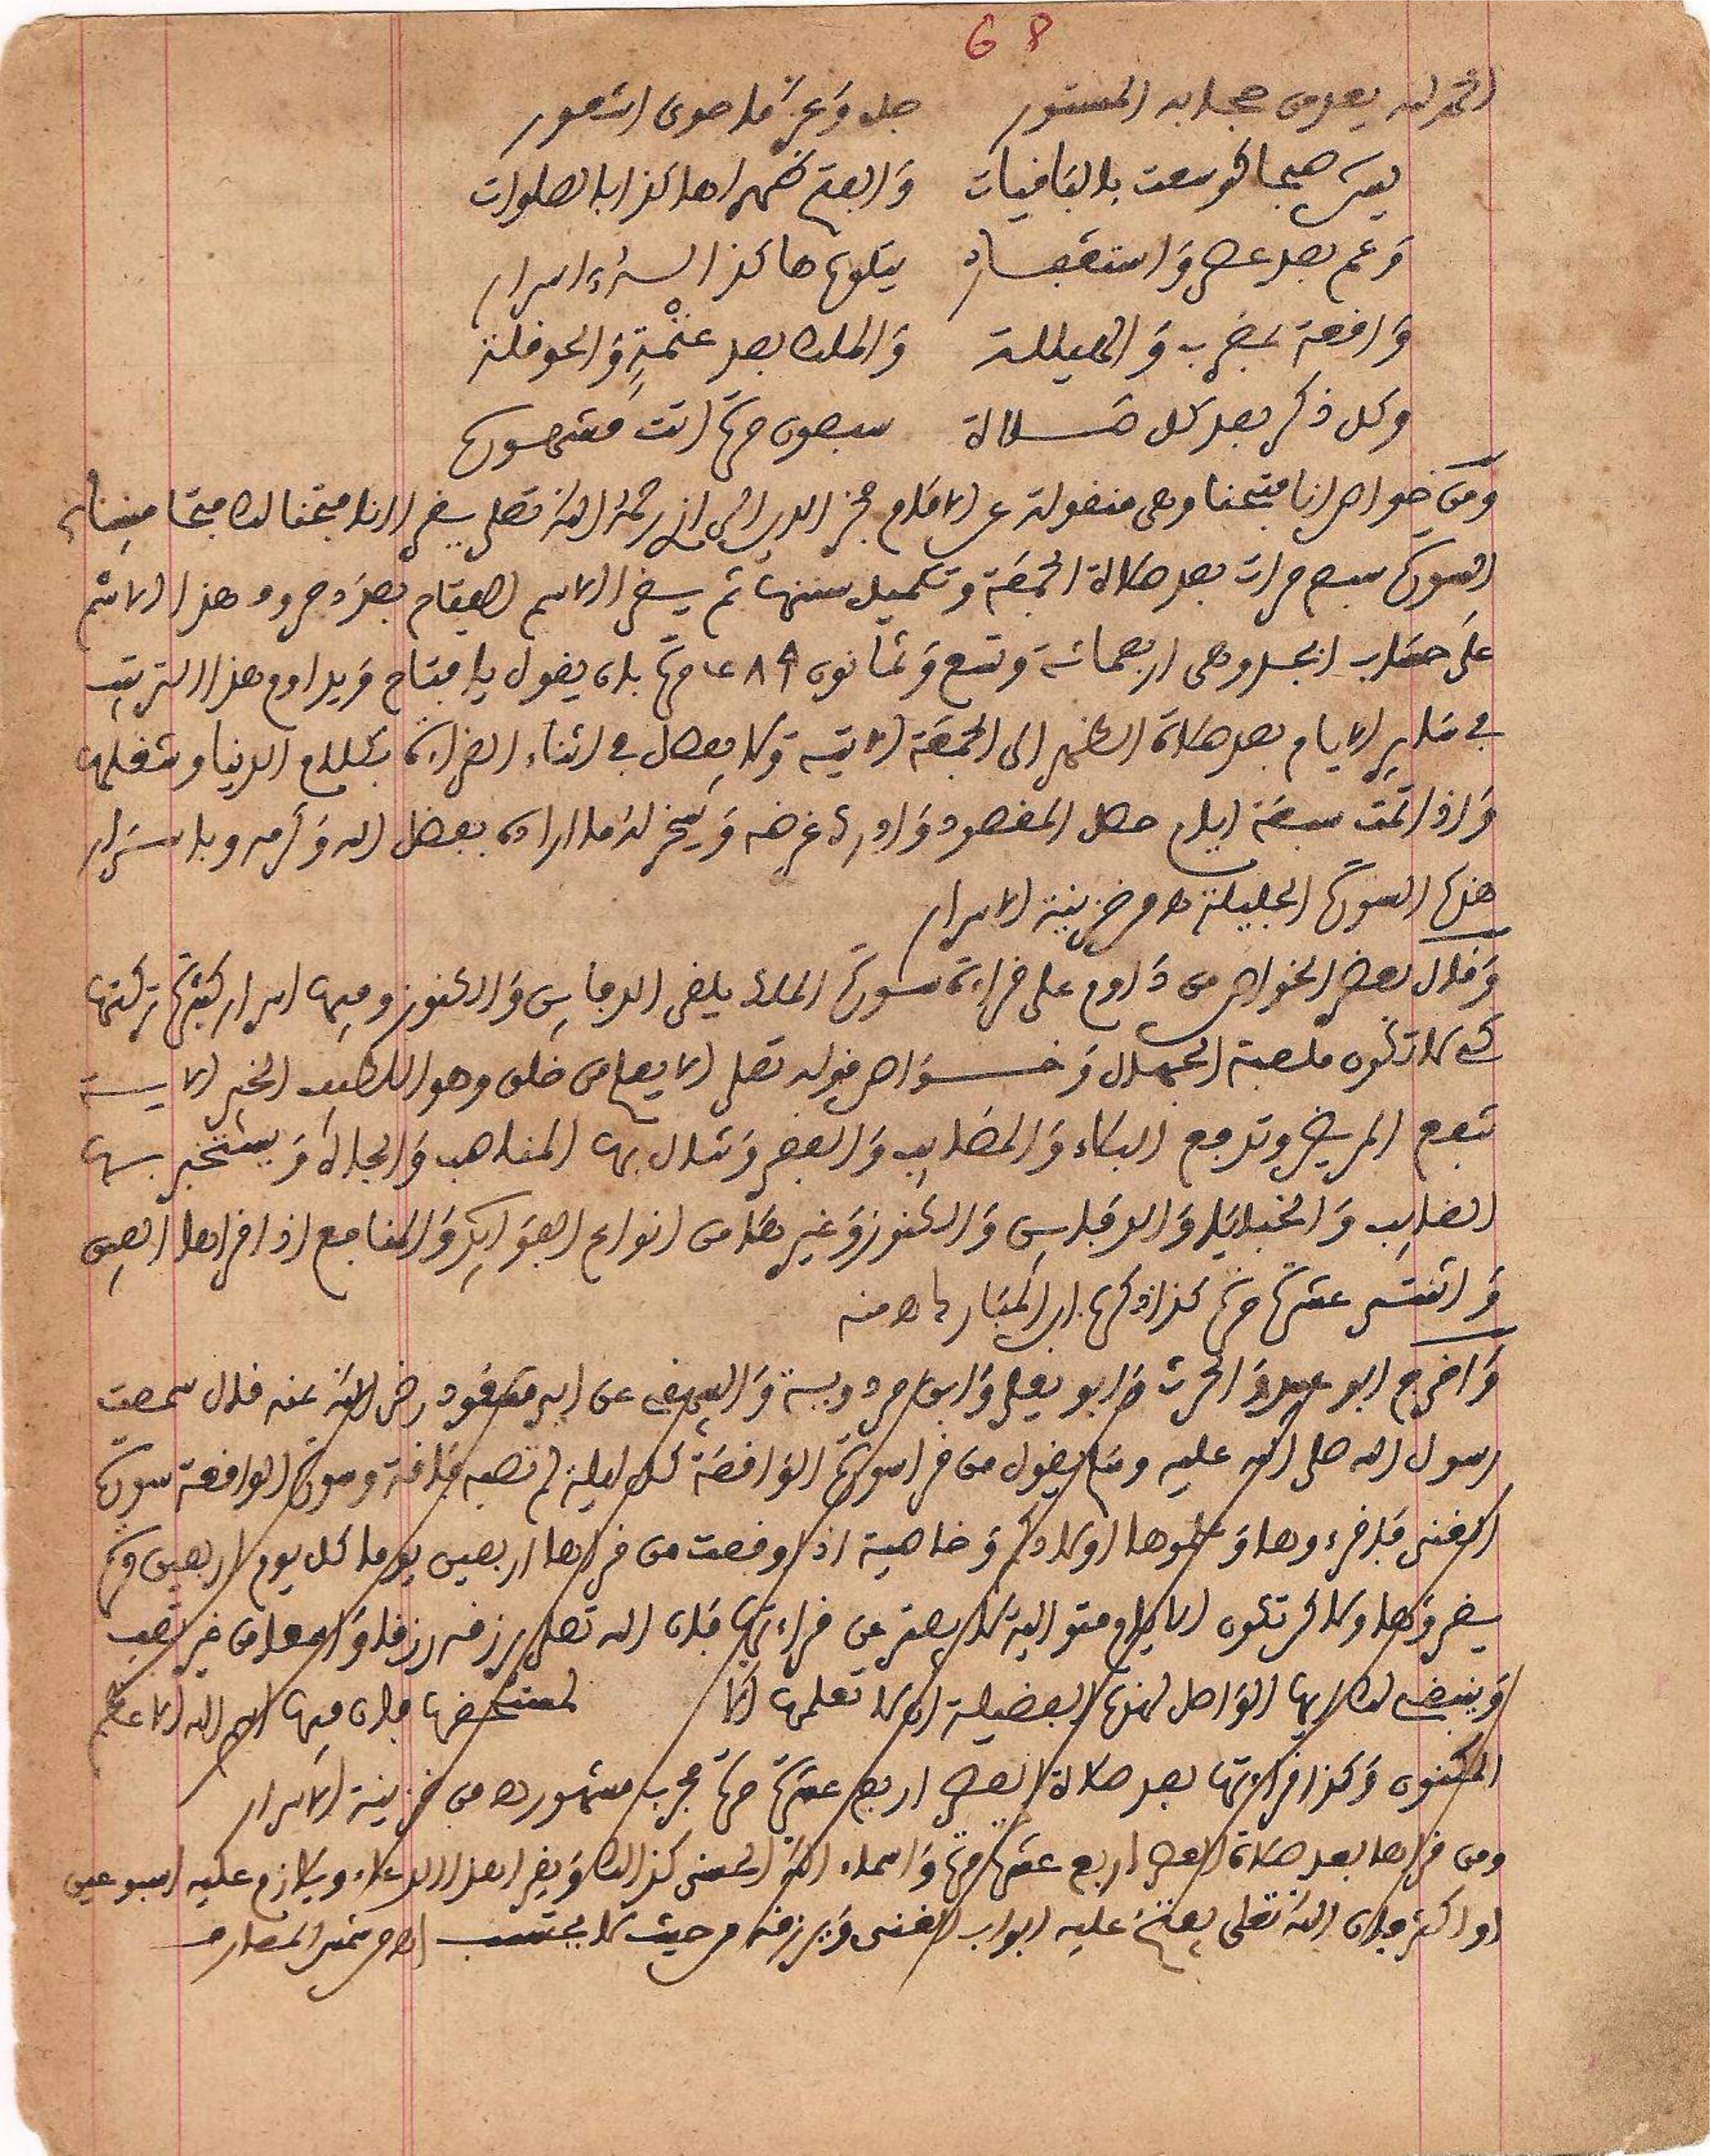 68
الحمد لله يعد من حجابه المستور جل وعز ما حوى السعور
يس صبحا لو سعت بالباقيات والفتح ظهرا هاكذا بالصلوات
وعم بعد عصر واستغفار يتلوها كذا السر اسرار
واقعة لمغرب والهيللة والملك بعد عتمة والحوقلة
وكل ذكر بعد كل صلاة سبعون مرة اتت مشهورة
ومن خواص انا فتحنا وهي منقولة عن الامام فخر الدين الرازي رحمه الله تعلى يقرا انا فتحنا لك فتحا مبينا
السورة سبع مرات بعد صلاة الجمعة وتكميل سننها ثم يقرا الاسم الفتاح بعدد حروف هذا الاسم
على حساب ابجد وهي اربعمائة وتسع وثمانون ٤٨٩ مرة بان يقول يا فتاح ويداوم هذا الترتيب
في ساير الايام بعد صلاة الظهر الى الجمعة الاتية ولا يفصل في اثناء القراءة بكلام الدنيا وشغلها
واذا تمت سبعة ايام حصل المقصود وادرك غرضه وسخر له ما اراده بفضل الله وكرمه وباسرار
هذه السورة الجليلة اه من خزينة الاسرار
وقال بعض الخواص من داوم على قراءة سورة الملك يلقى الدفاين والكنوز وفيها اسرار كثيرة تركتها
كي لا تكون ملعبة الجهال وخواص قوله تعلى الا يعلم من خلق وهو اللطيف الخبير الاية
تنفع المريض وتدفع البكاء والمصايب والفقر وتنال بها المناصب والجاه ويستخبر بها
الغايب والخبايا والدفاين والكنوز وغيرها من انواع الفوايد والمنافع اذا قراها الفين
واثنتي عشرة مرة كذا ذكره ابن المبارك اه منه
واخرج ابو عبيد والحرث وابو يعلى وابن مردوية والبيهقي عن ابن مسعود رضي الله عنه قال سمعت
رسول الله صلى الله عليه وسلم يقول من قرا سورة الواقعة كل ليلة لم تصبه فاقة وسورة الواقعة سورة
الغنى فاقرءوها وعلموها اولادكم وخاصية اذا وقعت من قراها اربعين يوما كل يوم اربعين مرة
يقروها ولاكن تكون الايام متوالية لا يفتر عن قراءتها فان الله تعلى يرزقه رزقا واسعا من غير تعب
وينبغي لك ايها الواصل لهذه الفضيلة ان لا تعلمها الا لمستحقها فان فيها اسم الله الاعظم
المكنون وكذا قراءتها بعد صلاة العصر اربع عشرة مرة مجرب مشهور اه من خزينة الاسرار
ومن قراها بعد صلاة العصر اربع عشرة مرة واسماء الله الحسنى كذالك ويقرا هذا الدعاء ويلازم عليه اسبوعين
او اكثر فان الله تعلى يفتح عليه ابواب الغنى ويرزقه من حيث لا يحتسب اه من شمس المعارف